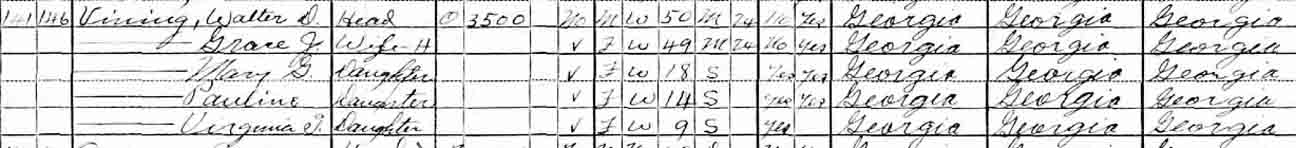 141 146 Vining, Walter D. Head O 3500 No M W 50 M 24 No Yes Georgia Georgia Georgia
Grace J. Wife-H V F W 49 M 24 No Yes Georgia Georgia Georgia
Mary G. Daughter V F W 18 S Yes Yes Georgia Georgia Georgia
Pauline Daughter V F W 14 S Yes Yes Georgia Georgia Georgia
Virginia J. Daughter V F W 9 S Yes Georgia Georgia Georgia